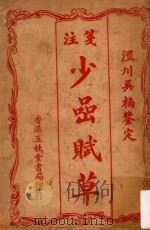 涇川吳楠鑒定
箋注
少嵒賦草
香港五桂堂書局